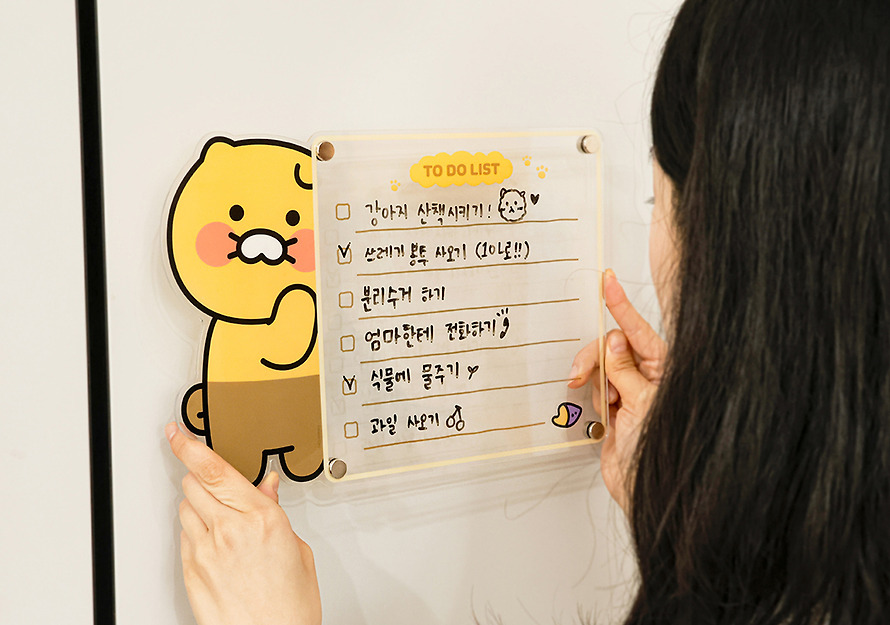 TO DO LIST
강아지 산책시키기!
쓰레기 봉투 사오기 (10L로!!)
분리수거 하기
엄마한테 전화하기
식물에 물주기
과일 사오기